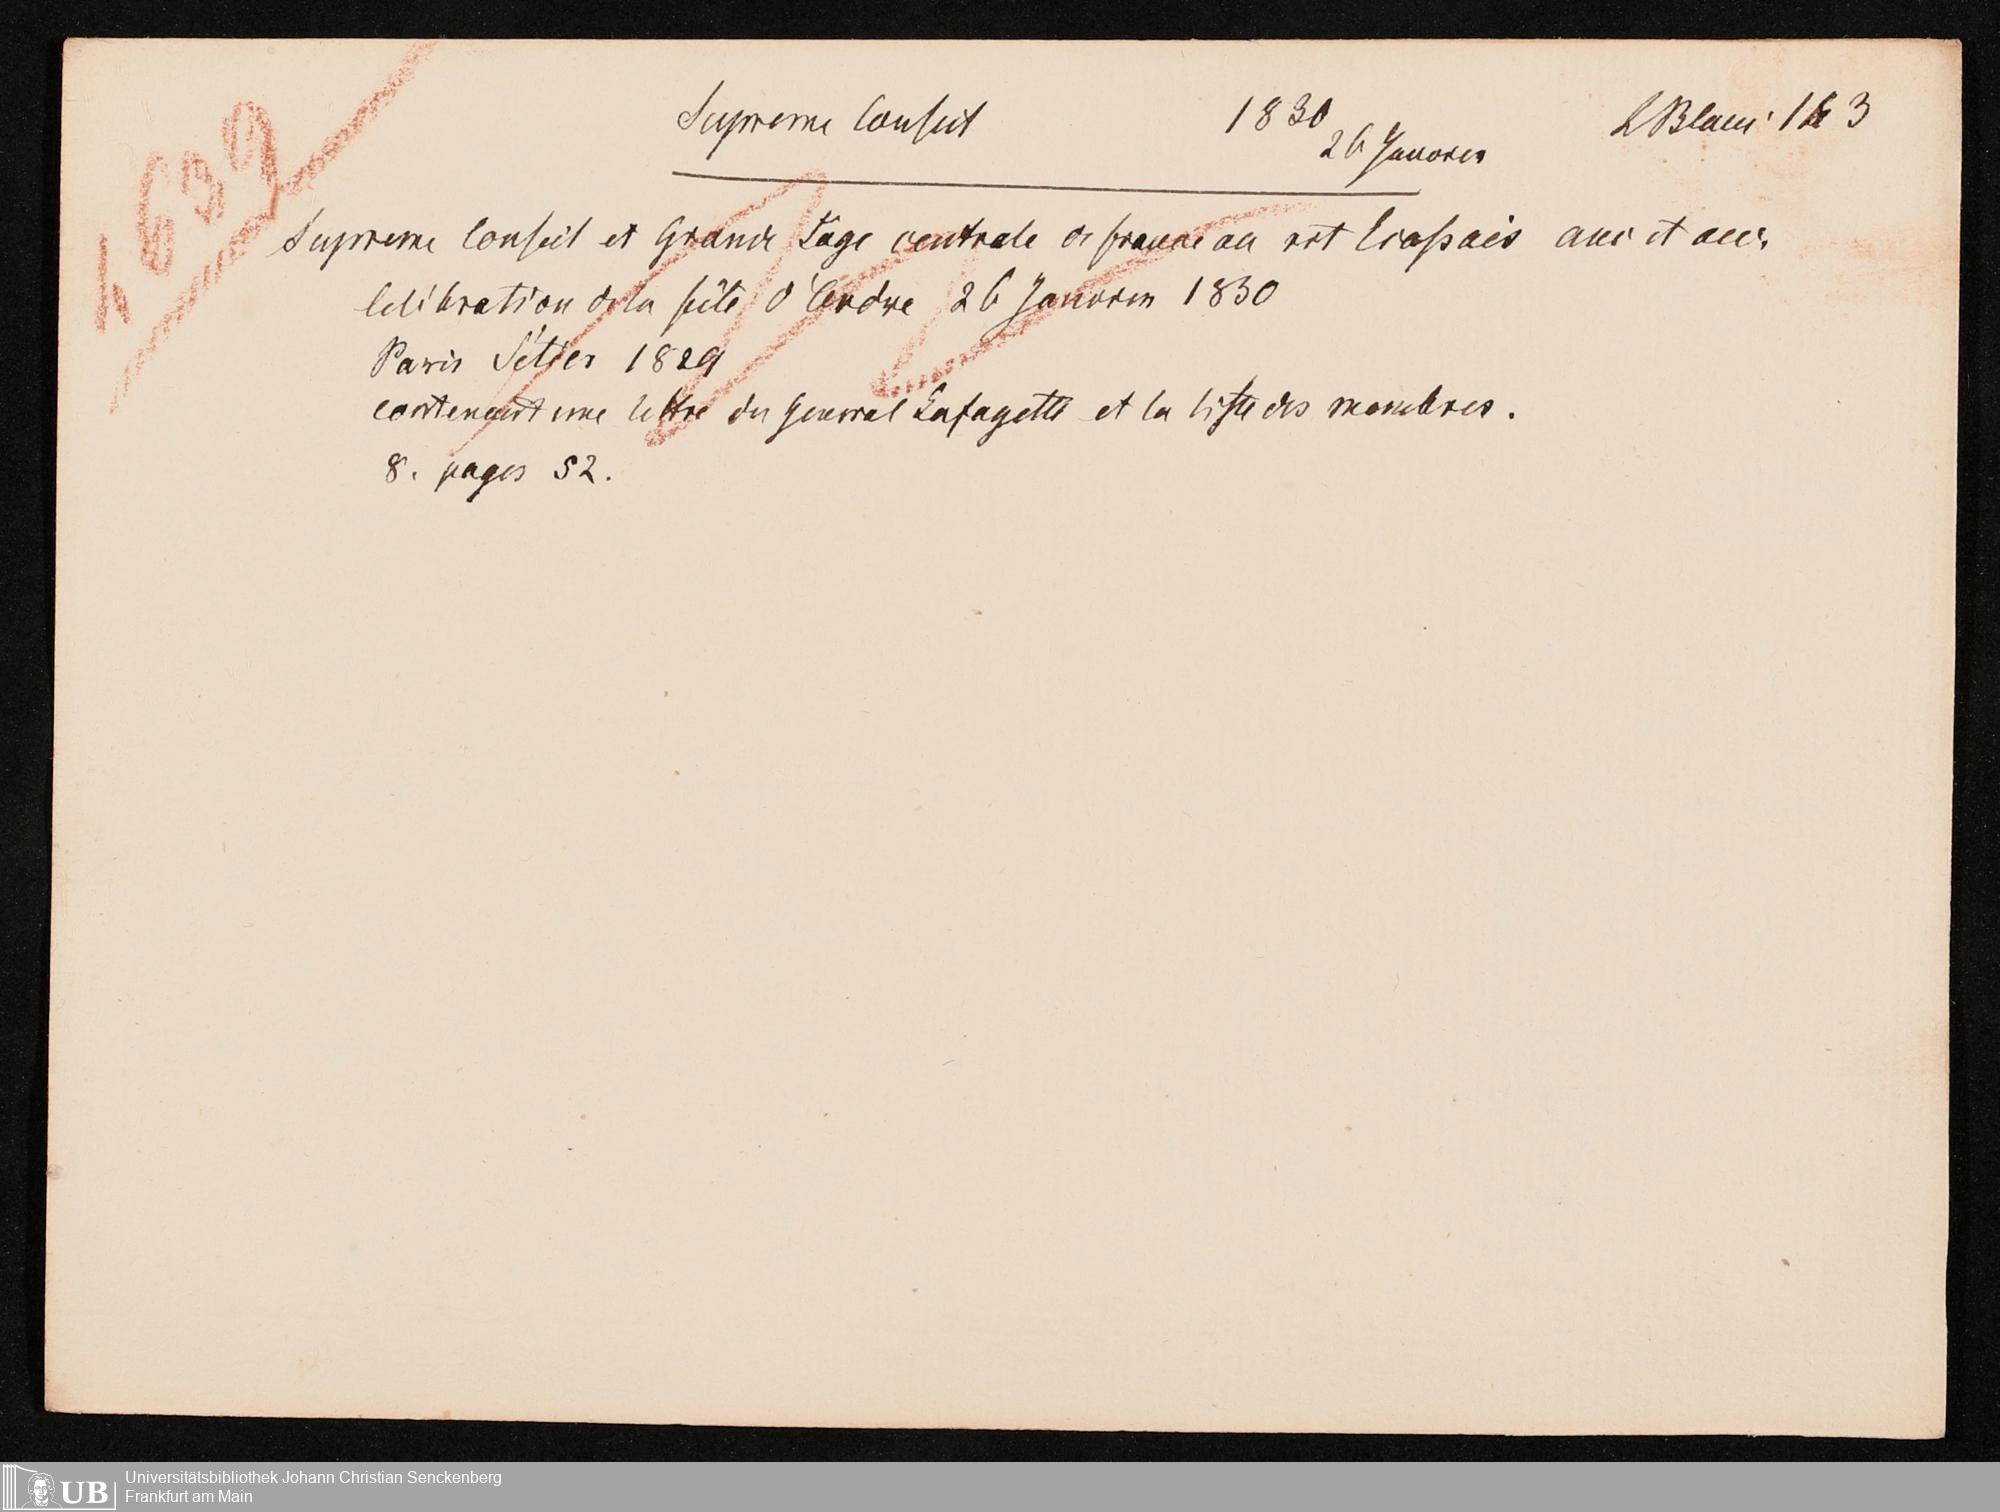 1639
Supreme Conseil 1830 26 Janvier L Blanc 163
Supreme Conseil et Grande Loge centrale de france au rit Ecossais anc et acc,
Célébration de la fête d'Ordre 26 Janvier 1830
Paris Sétier 1829
contenant une lettre du General Lafayette et la liste des membres.
8. pages 52.
UB Universitätsbibliothek Johann Christian Senckenberg
Frankfurt am Main